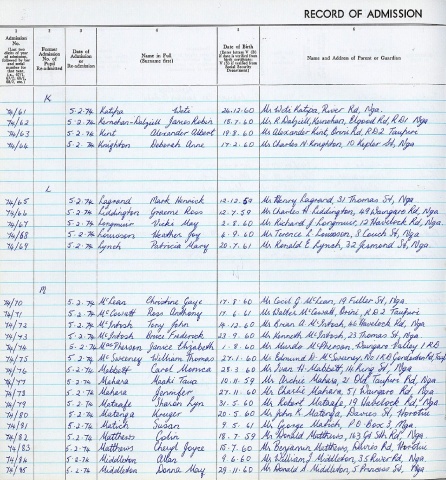 RECORD OF ADMISSION
1 2 3 4 5 6
Admission No.
Former Admission No. of Pupil Re-admitted
Date of Admission or Re-admission
Name in Full (Surname first)
Date of Birth
Name and Address of Parent or Guardian
K
74/61 5-2-74 Katipa Wate 26-12-60 Mr Wati Katipa, River Rd, Nga.
74/62 5-2-74 Kernohan-Dalziell James Robin 18-7-60 Mr R. Dalziell, Kernohan, Elgood Rd, RD1 Nga
74/63 5-2-74 Kent Alexander Albert 19-8-60 Mr Alexander Kent, Orini Rd, RD2 Taupiri
74/64 5-2-74 Knighton Deborah Anne 17-2-60 Mr Charles N. Knighton, 10 Kepler St, Nga
L
74/65 5-2-74 Lagrand Mark Henrick 12-12-59 Mr Henry Lagrand, 31 Thomas St, Nga.
74/66 5-2-74 Liddington Graeme Ross 12-7-59 Mr Charles H. Liddington, 49 Waingaro Rd, Nga
74/67 5-2-74 Longmuir Vicki May 2-8-60 Mr Richard J. Longmuir, 12 Havelock Rd, Nga.
74/68 5-2-74 Heather Joy 6-9-60 Mr Terence L. 8 Couch St, Nga
74/69 5-2-74 Lynch Patricia Mary 20-7-61 Mr Ronald E. Lynch, 32 Jesmond St, Nga.
M
74/70 5-2-74 McLean Christine Gaye 17-8-60 Mr Cecil G. McLean, 19 Fuller St, Nga.
74/71 5-2-74 McCowatt Ross Anthony 17-6-61 Mr Walter McCowatt, Orini, R.D.2 Taupiri
74/72 5-2-74 McIntosh Tony John 14-12-60 Mr Brian A. McIntosh, 66 Havelock Rd, Nga
74/73 5-2-74 McIntosh Bruce Frederick 23-9-60 Mr Kenneth McIntosh, 23 Thomas St, Nga.
74/74 5-2-74 MacPherson Janice Elizabeth 1-9-60 Mr Murdie McPherson, Waingaro Valley 1 RD
74/75 5-2-74 McSweeney William Thomas 27-11-60 Mr Edmund D. McSweeney, No 1 RD Gordonton Rd, Taupiri
74/76 5-2-74 Mabbett Carol Monica 28-3-60 Mr Ivan H. Mabbett, 46 King St, Nga
74/77 5-2-74 Mahara Haaki Tawa 10-11-59 Mr Archie Mahara, 21 Old Taupiri Rd, Nga
74/78 5-2-74 Mahara Jennifer 27-11-60 Mr Charlie Mahara, 51 Waingaro Rd, Nga
74/79 5-2-74 Metcalfe Sharon Lyn 31-5-60 Mr Robert Metcalfe, 19 Havelock Rd, Nga.
74/80 5-2-74 Matenga Kruger 20-5-60 Mr John K. Matenga, Davies St, Horotiu
74/81 5-2-74 Matich Susan 9-5-61 Mr George Matich, P.O. Box 3, Nga.
74/82 5-2-74 Matthews Colin 18-7-59 Mr Donald Matthews, 143 Gt Sth Rd, Nga.
74/83 5-2-74 Matthews Cheryl Joyce 15-7-60 Mr Benjamin Matthews, Davies Rd, Horotiu
74/84 5-2-74 Middleton Alan 9-6-60 Mr William J. Middleton, 35 River Rd, Nga.
74/85 5-2-74 Middleton Donna May 29-11-60 Mr Donald A. Middleton, 5 Princess St, Nga